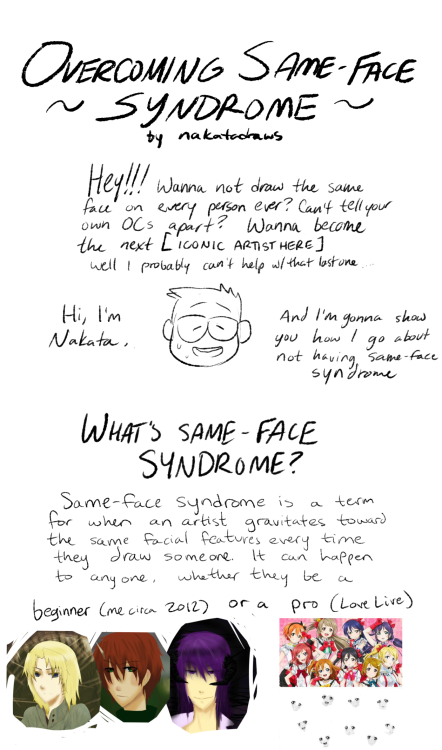 OVERCOMING SAME-FACE
~ SYNDROME ~
by nakatadraws
Hey!!! Wanna not draw the same
face on every person ever? Can't tell your
own OCs apart? Wanna become
the next [ICONIC ARTIST HERE]
well I probably can't help w/that last one...
Hi, I'm
Nakata.
And I'm gonna show
you how I go about
not having same-face
syndrome
WHAT'S SAME-FACE
SYNDROME?
Same-face syndrome is a term
for when an artist gravitates toward
the same facial features every time
they draw someone. It can happen
to anyone, whether they be a
beginner (me circa 2012) or a pro (Love Live)